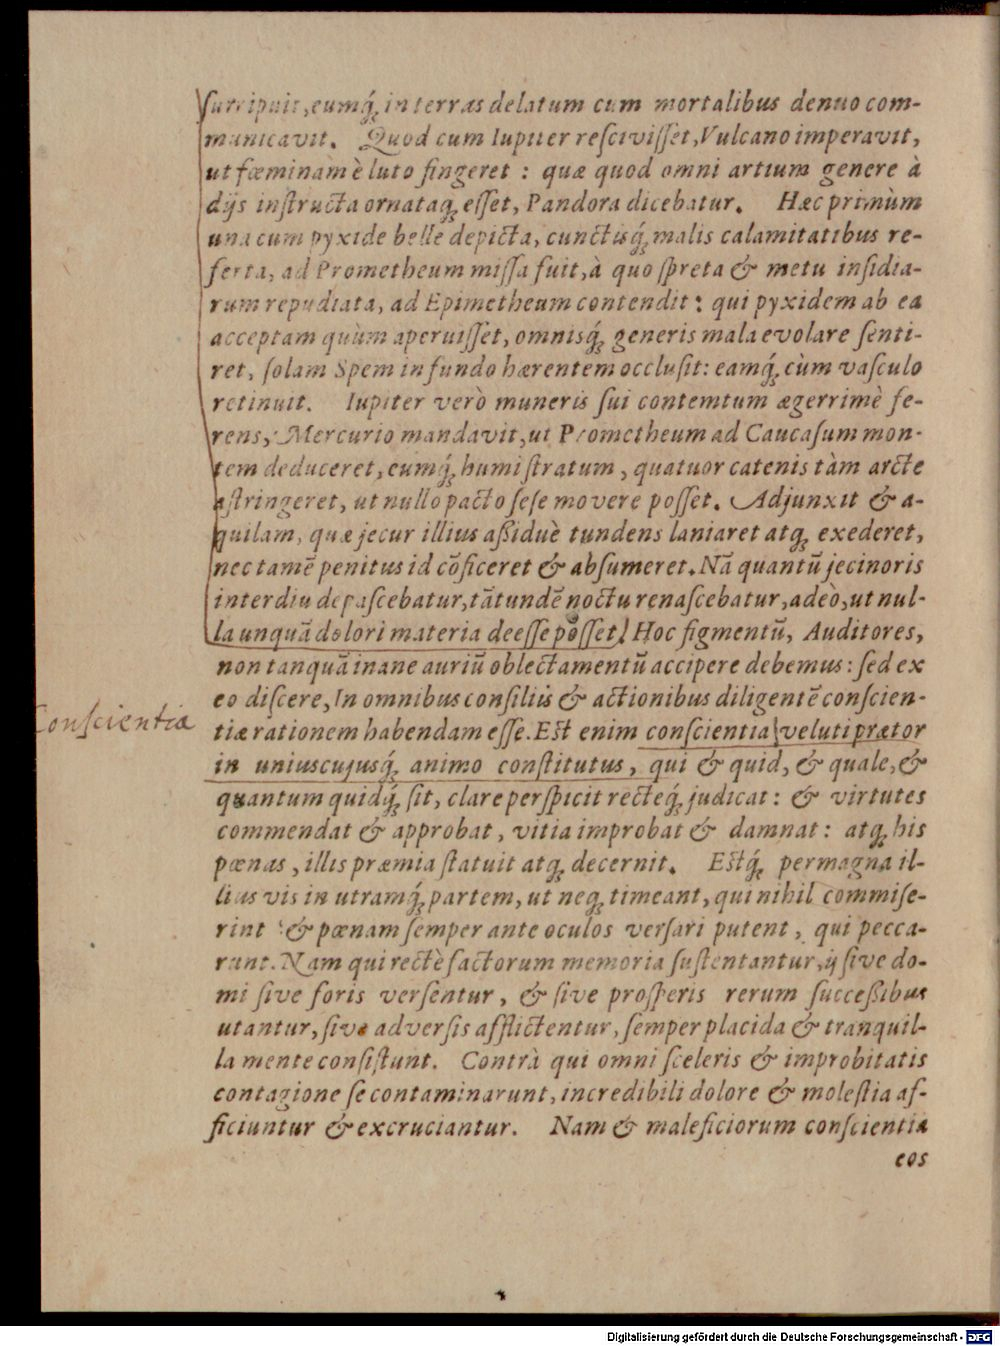 ſurripuit, eumq́; in terras delatum cum mortalibus denuo com-
municavit. Quod cum Iupiter reſciviſſet, Vulcano imperavit,
ut fœminam è luto fingeret : quæ quod omni artium genere à
dijs inſtructa ornataq; eſſet, Pandora dicebatur. Hæc primùm
una cum pyxide belle depicta, cunctisq́; malis calamitatibus re-
ferta, ad Prometheum miſſa fuit, à quo ſpreta & metu inſidia-
rum repudiata, ad Epimetheum contendit : qui pyxidem ab ea
acceptam quùm aperuiſſet, omnisq́; generis mala evolare ſenti-
ret, ſolam Spem in fundo hærentem occluſit: eamq́; cùm vaſculo
retinuit. Iupiter verò muneris ſui contemtum ægerrimè fe-
rens, Mercurio mandavit, ut Prometheum ad Caucaſum mon-
tem deduceret, eumq́; humi ſtratum, quatuor catenis tàm arcte
aſtringeret, ut nullo pacto ſeſe movere poſſet. Adjunxit & a-
quilam, quæ jecur illius aßiduè tundens laniaret atq; exederet,
nec tamẽ penitus id cõficeret & abſumeret. Nã quantũ jecinoris
interdiu depaſcebatur, tãtundẽ noctu renaſcebatur, adeò, ut nul-
la unquã dolori materia deeſſe poſſet. Hoc figmentũ, Auditores,
non tanquã inane auriũ oblectamentũ accipere debemus: ſed ex
eo diſcere, In omnibus conſiliis & actionibus diligentẽ conſcien-
Conſcientia
tiæ rationem habendam eſſe. Eſt enim conſcientia veluti prætor
in uniuscujusq́; animo conſtitutus, qui & quid, & quale, &
quantum quidq́; ſit, clare perſpicit recteq́; judicat: & virtutes
commendat & approbat, vitia improbat & damnat: atq; his
pœnas, illis præmia ſtatuit atq; decernit. Eſtq́; permagna il-
lius vis in utramq́; partem, ut neq; timeant, qui nihil commiſe-
rint & pœnam ſemper ante oculos verſari putent, qui pecca-
runt. Nam qui rectè factorum memoria ſuſtentantur, ij ſive do-
mi ſive foris verſentur, & ſive proſperis rerum ſucceßibus
utantur, ſive adverſis afflictentur, ſemper placida & tranquil-
la mente conſiſtunt. Contrà qui omni ſceleris & improbitatis
contagione ſe contaminarunt, incredibili dolore & moleſtia af-
ficiuntur & excruciantur. Nam & maleficiorum conſcientia
eos
Digitalisierung gefördert durch die Deutsche Forschungsgemeinschaft - DFG